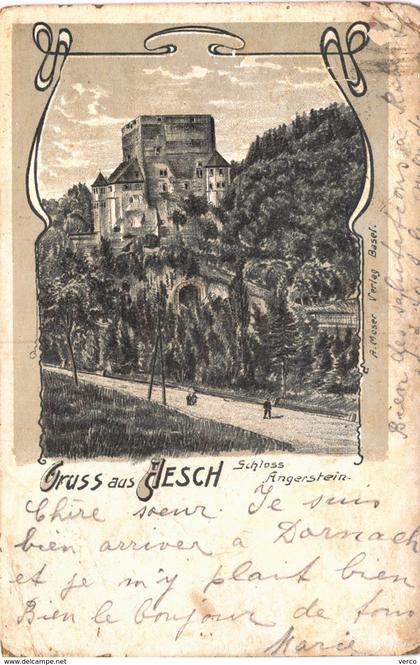 Gruss aus JESCH
Schloss
Angerstein.
A. Moser Verlag Basel.
Chère soeur. Je suis
bien arriver à Dornach
et je m'y plait bien
Bien le bonjour de tous
Marie
Bien des salutations à
verco